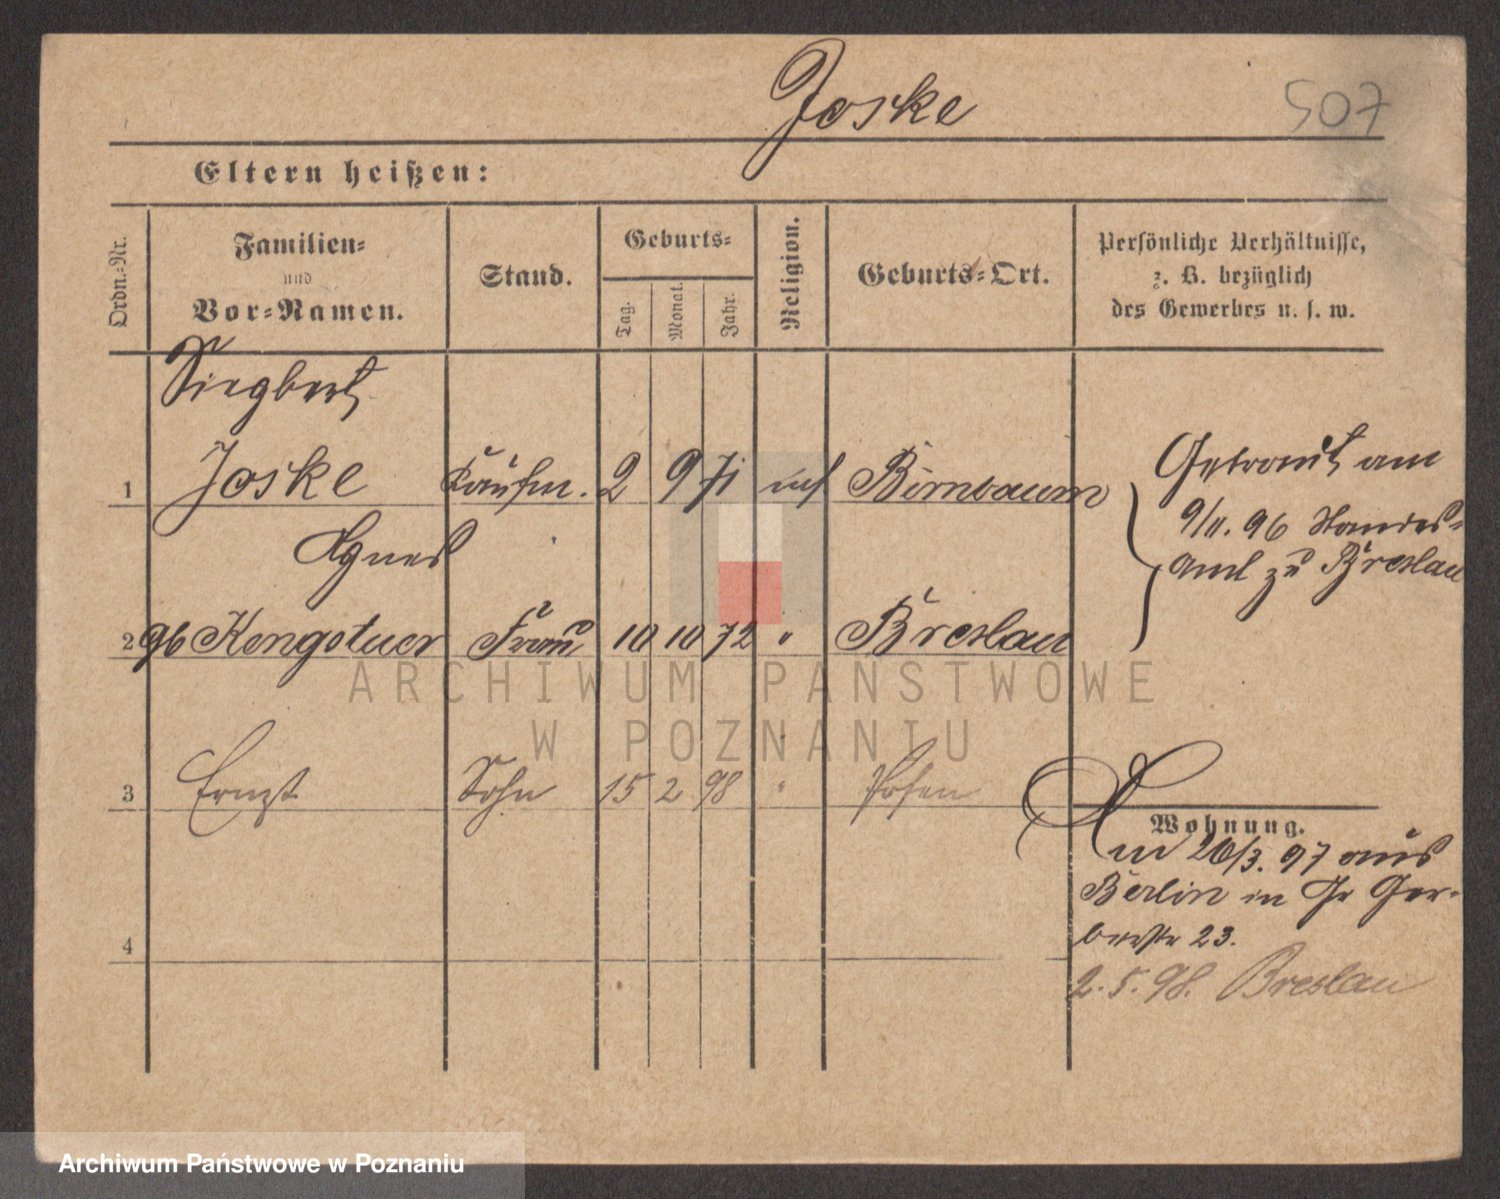 Joske
507
Eltern heißen:
Ordn.-Nr.
Familien-
und
Vor-Namen.
Stand.
Geburts-
Tag.
Monat.
Jahr.
Religion.
Geburts-Ort.
Persönliche Verhältnisse,
z. B. bezüglich
des Gewerbes u. s. w.
Siegbert
1 Joske Kaufm. 2 9 71 Birnbaum
Getraut am
9/11. 96 Standes-
amt zu Breslau
Agnes
2 Frau 10 10 72 " Breslau
3 Ernst Sohn 15 2 98 " Posen
Wohnung.
26/3. 97 aus
Berlin in Gr Ger-
berstr 23.
4
2. 5. 98. Breslau
ARCHIWUM PAŃSTWOWE
W POZNANIU
Archiwum Państwowe w Poznaniu